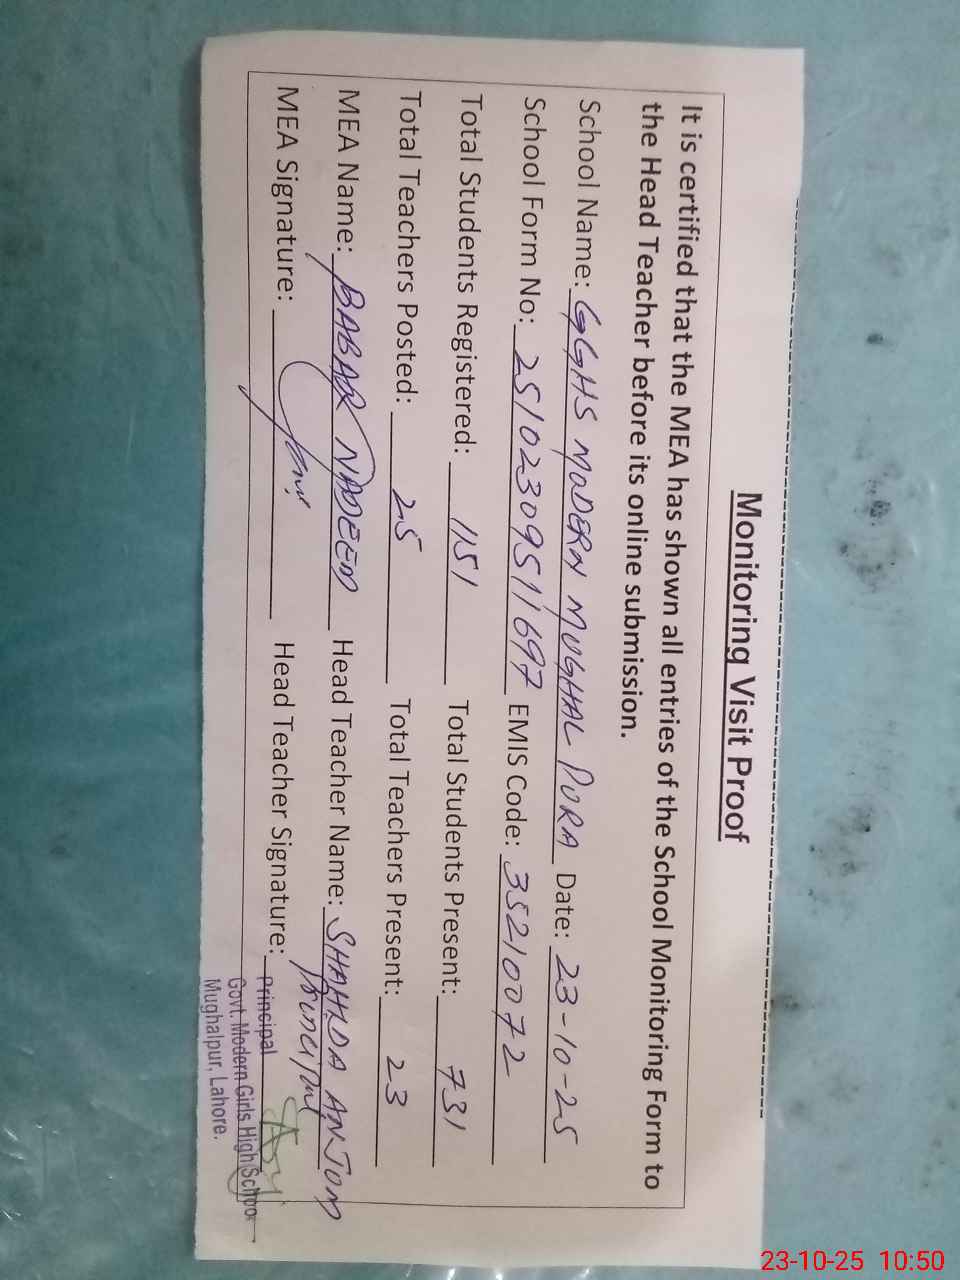 Monitoring Visit Proof
It is certified that the MEA has shown all entries of the School Monitoring Form to
the Head Teacher before its online submission.
School Name: GGHS MODERN MUGHAL PURA Date: 23-10-25
School Form No: 25102309511697 EMIS Code: 35210072
Total Students Registered: 1151 Total Students Present: 731
Total Teachers Posted: 25 Total Teachers Present: 23
MEA Name: BABAR NADEEM Head Teacher Name: SHAHIDA ANJUM
Principal
MEA Signature: Head Teacher Signature:
Principal
Govt. Modern Girls High School
Mughalpur, Lahore.
23-10-25 10:50